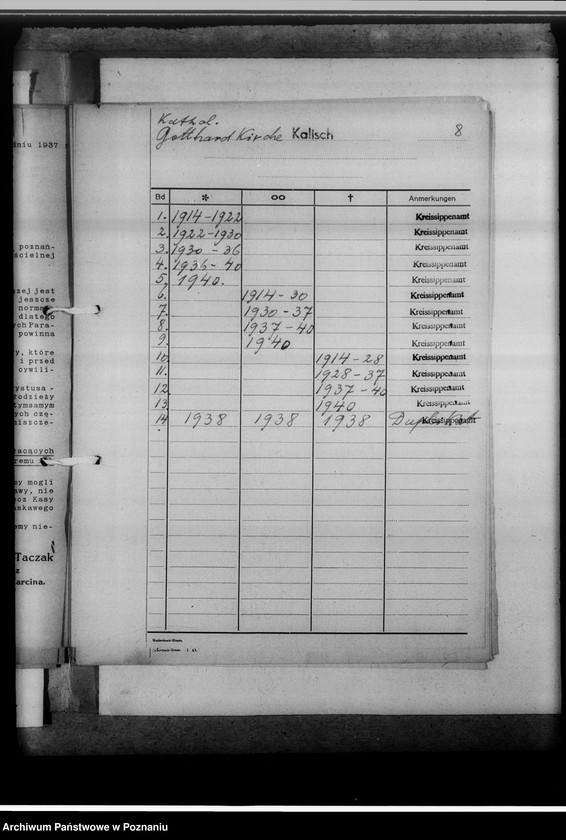 dniu 1937
poznan-
ścielnej
zej jest
jeszcze
dlatego
ych Para-
powinna
y, które
i przed
cywili-
ystusa -
rodzieży
ych czę-
niszcze-
zacących
remu
my mogli
awy, nie
ocz Kasy
askawego
emy nie-
Taczak
z
arcina.
Kathol.
Gotthard Kirche Kalisch 8
Bd * ∞ † Anmerkungen
1. 1914-1922 Kreissippenamt
2. 1922-1930 Kreissippenamt
3. 1930-36 Kreissippenamt
4. 1936-40 Kreissippenamt
5. 1940. Kreissippenamt
6. 1914-30 Kreissippenamt
7. 1930-37 Kreissippenamt
8. 1937-40 Kreissippenamt
9. 1940 Kreissippenamt
10. 1914-28 Kreissippenamt
11. 1928-37 Kreissippenamt
12. 1937-40 Kreissippenamt
13. 1940 Kreissippenamt
14. 1938 1938 1938 Kreissippenamt
Archiwum Państwowe w Poznaniu